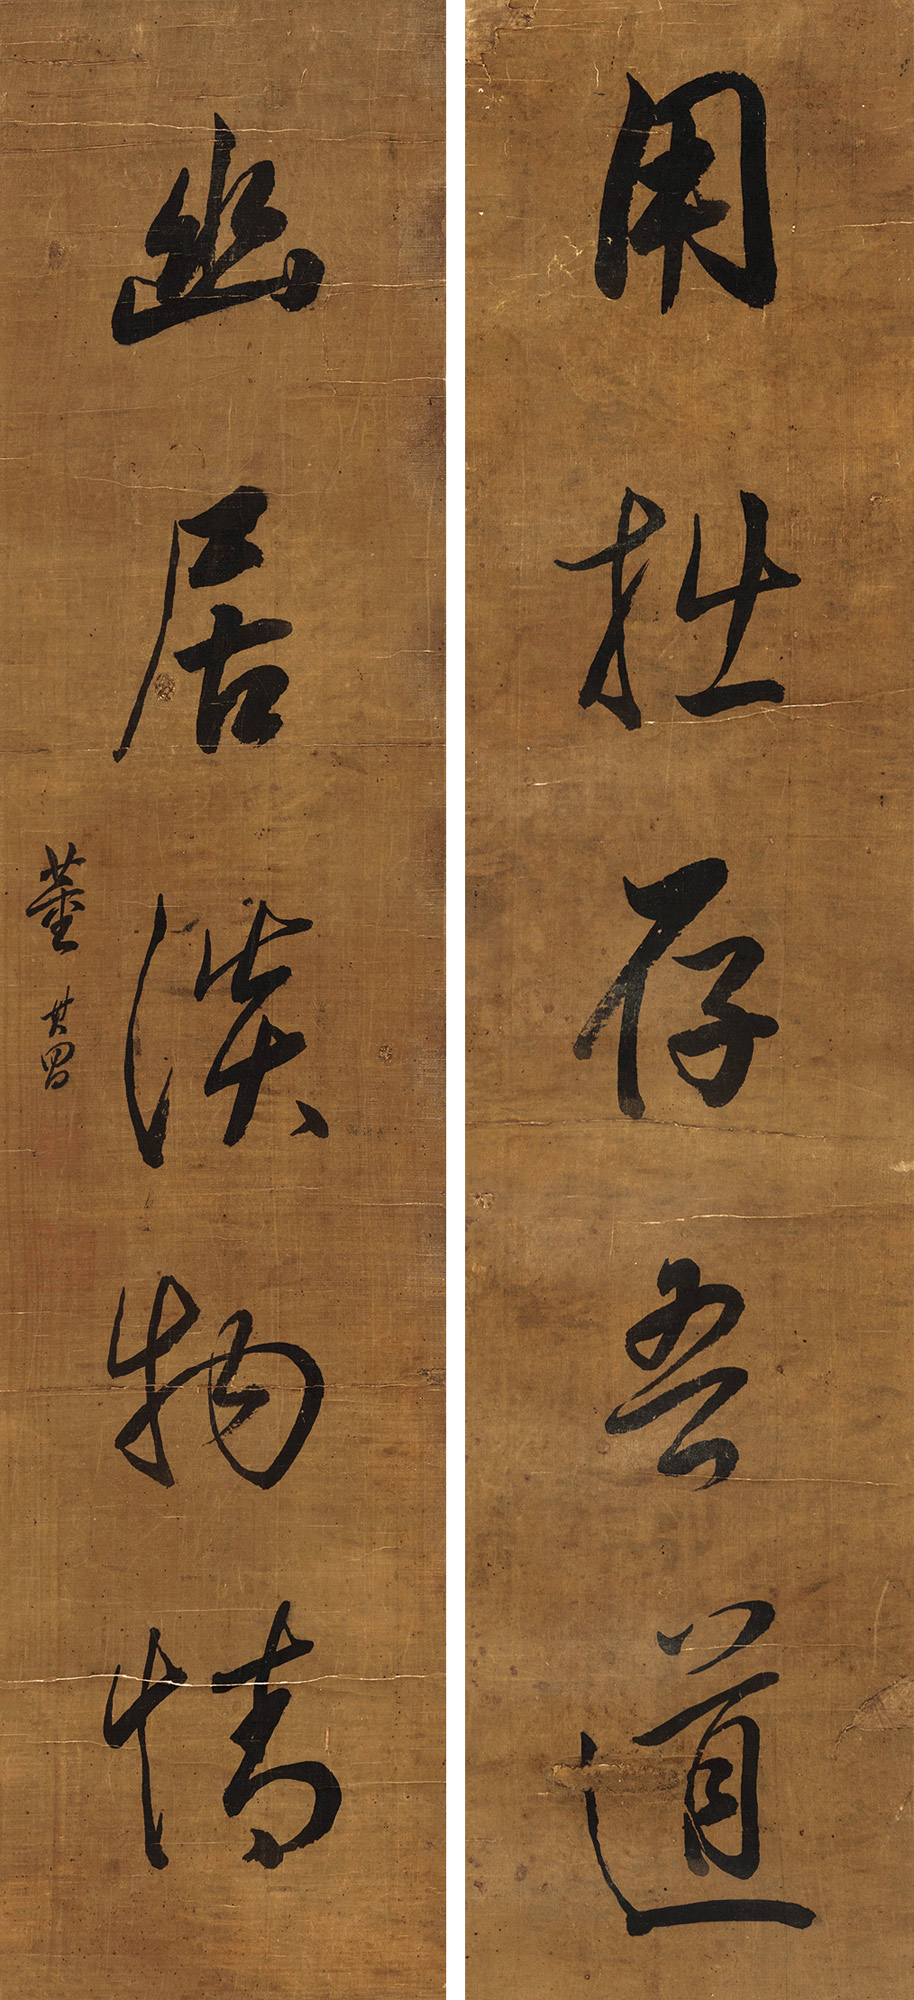 用拙存吾道
幽居淡物情
董其昌